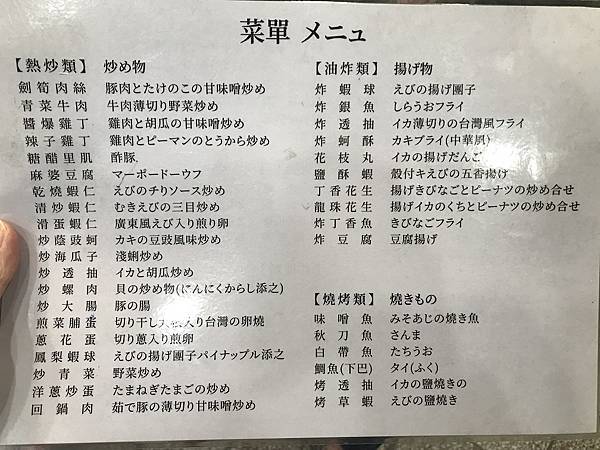 菜單 メニュ
【熱炒類】 炒め物
劍筍肉絲 豚肉とたけのこの甘味噌炒め
青菜牛肉 牛肉薄切り野菜炒め
醬爆雞丁 雞肉と胡瓜の甘味噌炒め
辣子雞丁 雞肉とピーマンのとうから炒め
糖醋里肌 酢豚.
麻婆豆腐 マーポードーウフ
乾燒蝦仁 えびのチリソース炒め
清炒蝦仁 むきえびの三目炒め
滑蛋蝦仁 廣東風えび入り煎り卵
炒蔭豉蚵 カキの豆豉風味炒め
炒海瓜子 淺蜊炒め
炒透抽 イカと胡瓜炒め
炒螺肉 貝の炒め物(にんにくからし添之)
炒大腸 豚の腸
煎菜脯蛋 切り干し大根入り台灣の卵燒
蔥花蛋 切り蔥入り煎卵
鳳梨蝦球 えびの揚げ團子パイナップル添之
炒青菜 野菜炒め
洋蔥炒蛋 たまねぎたまごの炒め
回鍋肉 茹で豚の薄切り甘味噌炒め
【油炸類】 揚げ物
炸蝦球 えびの揚げ團子
炸銀魚 しらうおフライ
炸透抽 イカ薄切りの台灣風フライ
炸蚵酥 カキブライ(中華風)
花枝丸 イカの揚げだんご
鹽酥蝦 殼付キえびの五香揚げ
丁香花生 揚げきびなごとピーナツの炒め合せ
龍珠花生 揚げイカのくちとピーナツの炒め合せ
炸丁香魚 きびなごフライ
炸豆腐 豆腐揚げ
【燒烤類】 燒きもの
味噌魚 みそあじの燒き魚
秋刀魚 さんま
白帶魚 たちうお
鯛魚(下巴) タイ(ふく)
烤透抽 イカの鹽燒きの
烤草蝦 えびの鹽燒き